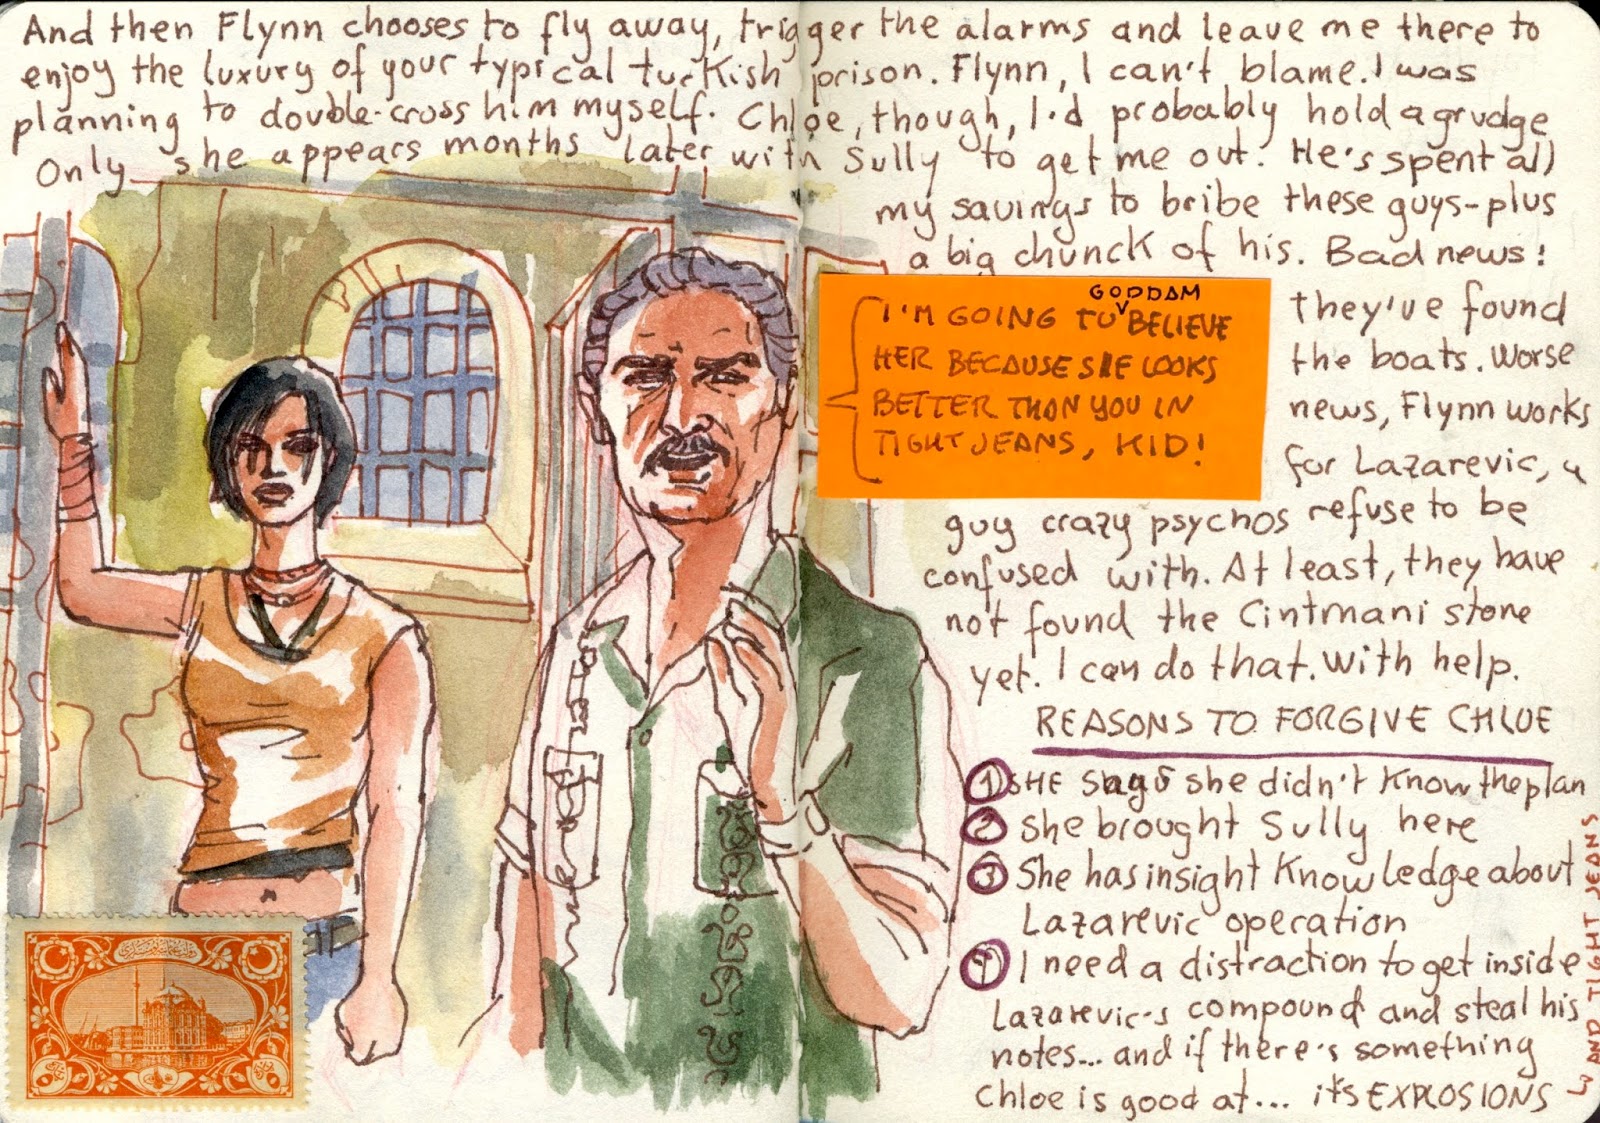 And then Flynn chooses to fly away, trigger the alarms and leave me there to
enjoy the luxury of your typical turkish prison. Flynn, I can't blame. I was
planning to double-cross him myself. Chloe, though, I'd probably hold a grudge
Only she appears months later with Sully to get me out. He's spent all
my savings to bribe these guys-plus
a big chunck of his. Bad news:
they've found
the boats. Worse
news, Flynn works
for Lazarevic, a
guy crazy psychos refuse to be
confused with. At least, they have
not found the Cintmani stone
yet. I can do that. With help.
I'M GOING TO GODDAM BELIEVE
HER BECAUSE SHE LOOKS
BETTER THAN YOU IN
TIGHT JEANS, KID!
REASONS TO FORGIVE CHLOE
1 SHE says she didn't know the plan
2 She brought Sully here
3 She has insight knowledge about
Lazarevic operation
4 I need a distraction to get inside
Lazarevic's compound and steal his
notes... and if there's something
Chloe is good at... it's EXPLOSIONS
AND TIGHT JEANS